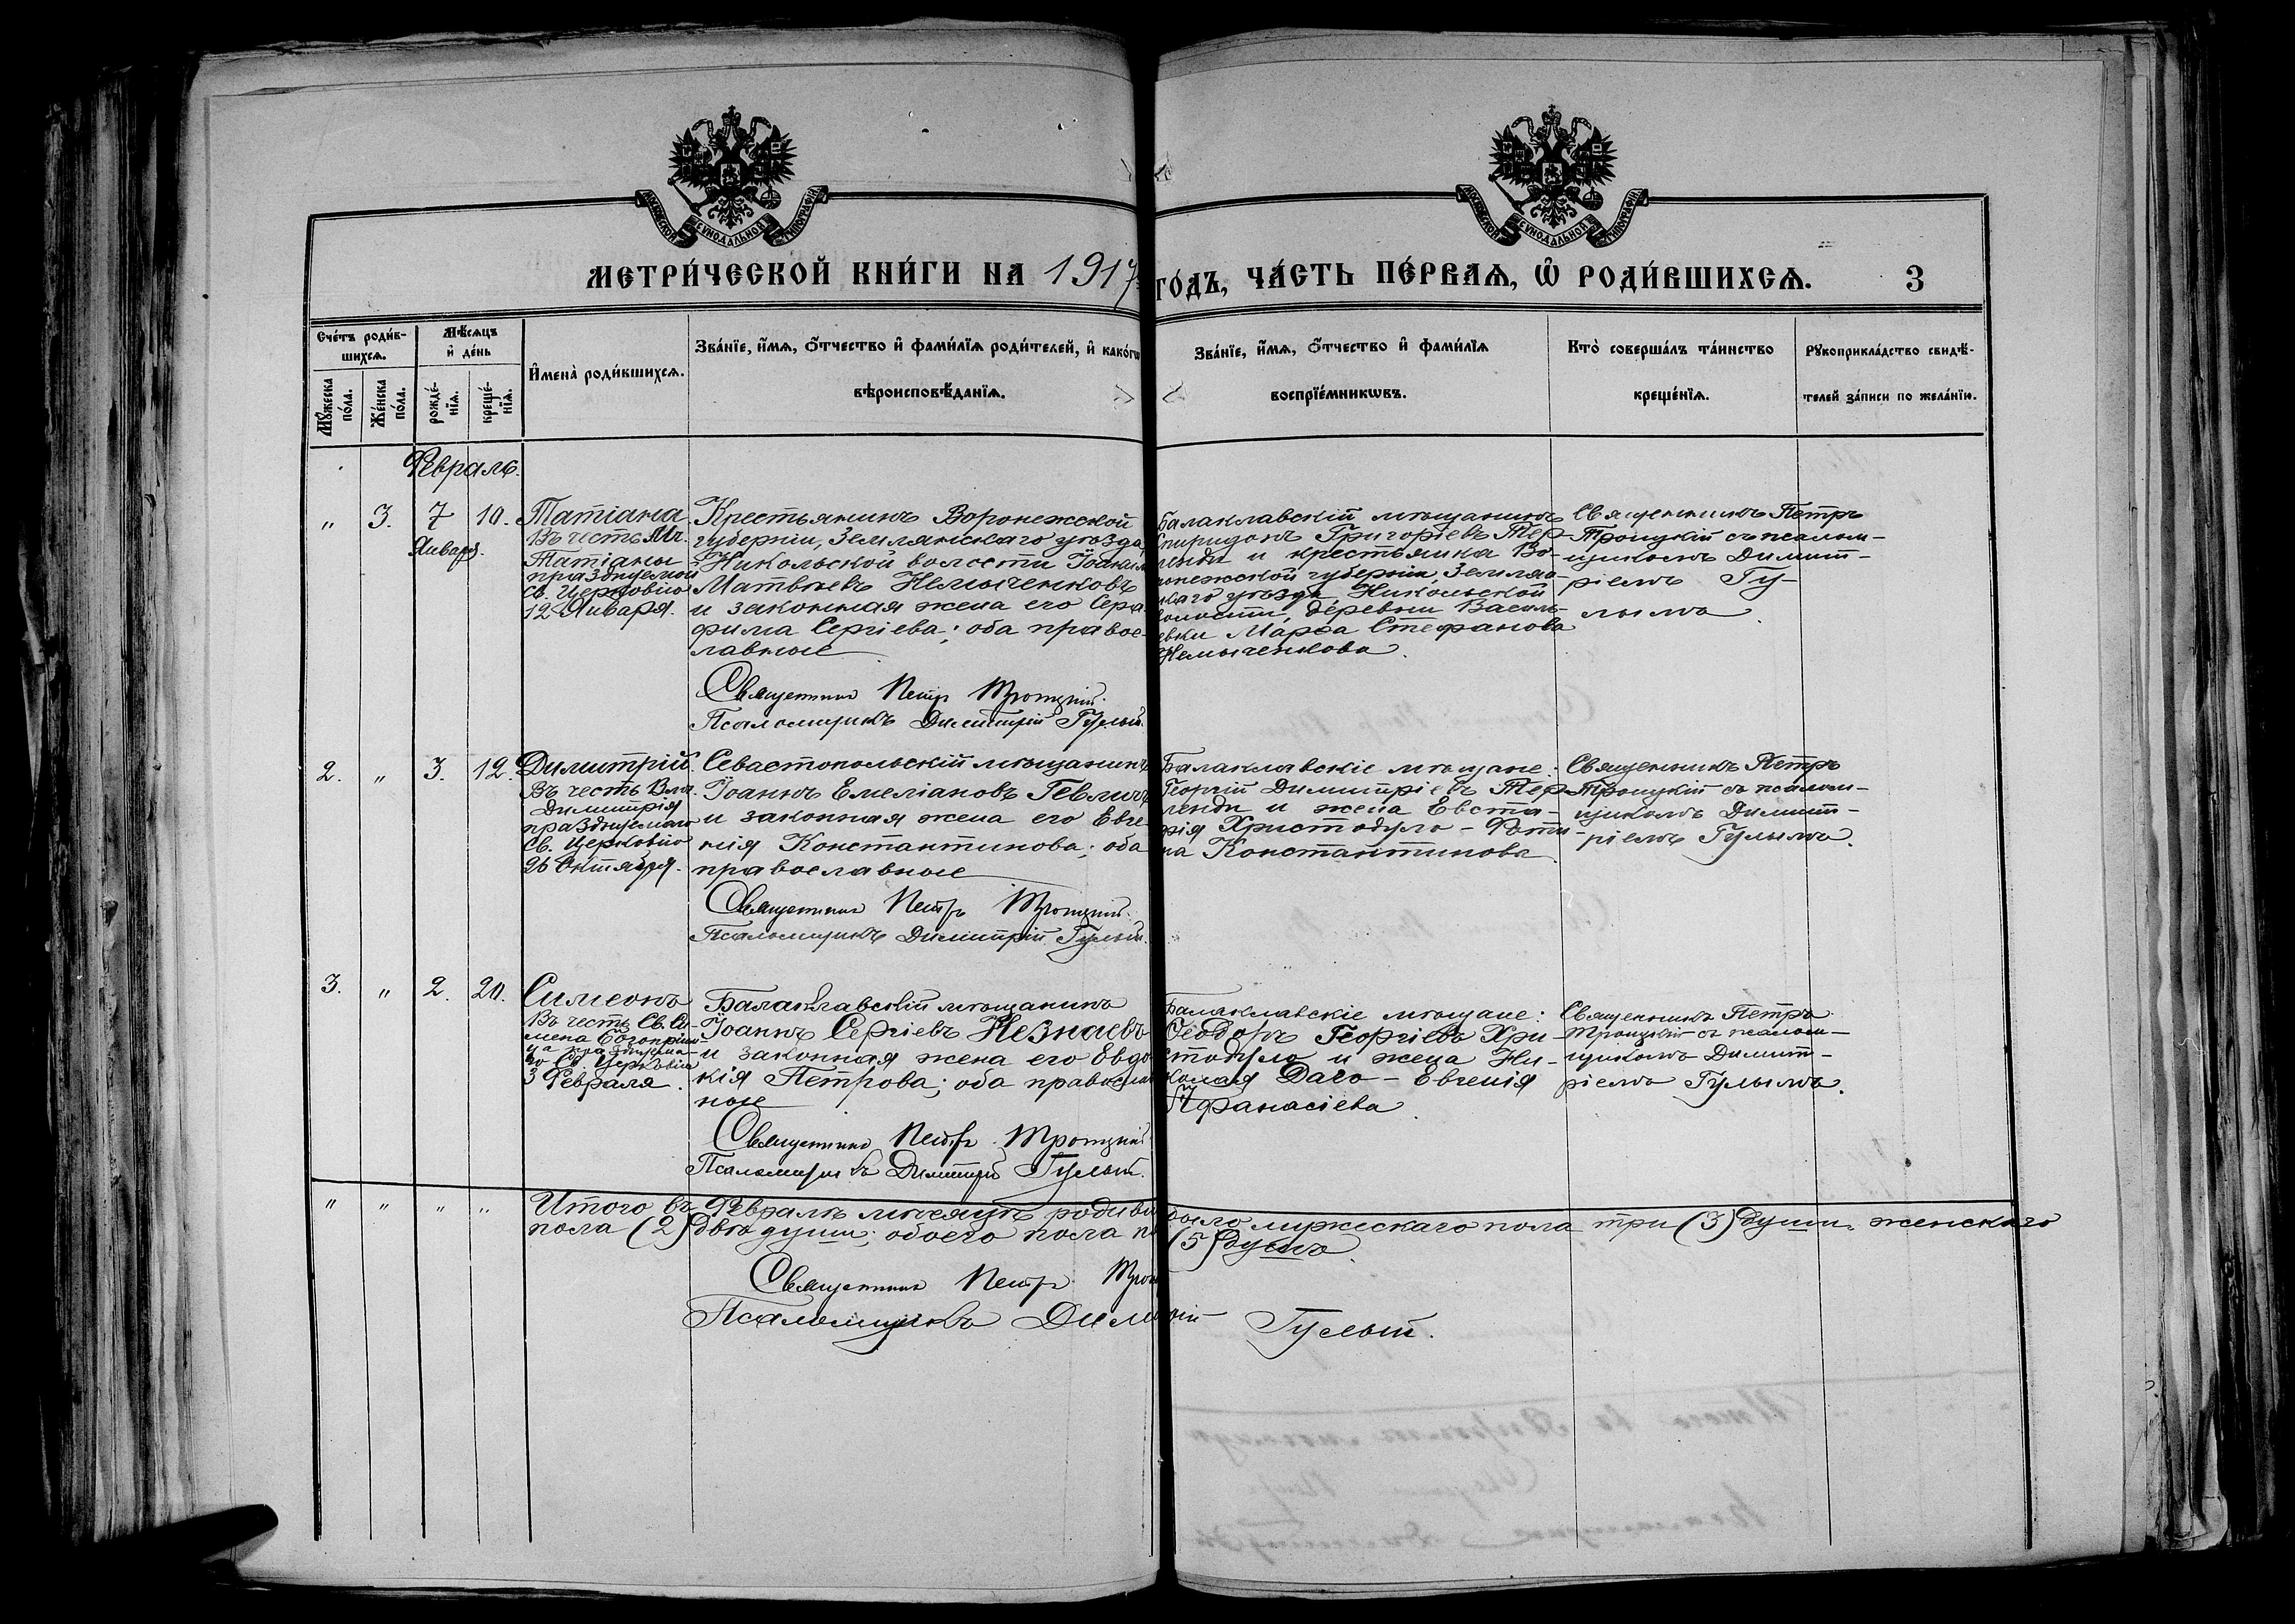 МОСКОВСКОЙ СѴНОДАЛЬНОЙ ТИПОГРАФІИ
МОСКОВСКОЙ СѴНОДАЛЬНОЙ ТИПОГРАФІИ
МЕТРИ́ЧЕСКОЙ КНИ́ГИ НА 1917
ГО́ДЪ, ЧА́СТЬ ПЕ́РВАѦ, Ѡ҆ РОДИ́ВШИХСѦ. 3
Сче́тъ роди́в-
шихсѧ.
Мꙋ́жеска по́ла.
Же́нска по́ла.
Мѣ́сѧцъ
и҆ де́нь
рожде́-
нїѧ.
креще́-
нїѧ.
И҆мена̀ роди́вшихсѧ.
Зва́нїе, и҆́мѧ, ѻ҆́тчество и҆ фами́лїѧ роди́телей, и҆ како́гѡ
вѣроисповѣ́данїѧ.
Зва́нїе, и҆́мѧ, ѻ҆́тчество и҆ фами́лїѧ
воспрїе́мникѡвъ.
Кто̀ соверша́лъ та́инство
креще́нїѧ.
Рꙋкоприкла́дство свидѣ́-
телей за́писи по жела́нїю.
Февраль.
„ 3. 7 10.
Январ.
Татіана
Въ честь Мч.
Татіаны
празднуемой
Св. Церковію
12 Января.
Крестьянинъ Воронежской
губерніи, Землянскаго уѣзда,
Никольской волости Іоаннъ
Матвѣевъ Немыченковъ
и законная жена его Сера-
фима Сергіева; оба правос-
лавные
Священникъ Петръ Троицкій.
Псаломщикъ Димитрій Гулый.
Балаклавскій мѣщанинъ
Спиридонъ Григоріевъ Тер-
ленди и крестьянка Во-
ронежской губерніи, Землян-
скаго уѣзда Никольской
волости, деревни Василь-
евки Марѳа Стефанова
Немыченкова.
Священникъ Петръ
Троицкій съ псалом-
щикомъ Димит-
ріемъ Гу-
лымъ.
2. „ 3. 12.
Димитрій.
Въ честь Влм.
Димитрія
празднуемаго
Св. Церковію
26 Октября.
Севастопольскій мѣщанинъ
Іоаннъ Емеліановъ Гевличъ
и законная жена его Евге-
нія Константинова; оба
православные
Священникъ Петръ Троицкій.
Псаломщикъ Димитрій Гулый.
Балаклавскіе мѣщане:
Георгій Димитріевъ Тер-
ленди и жена Евста-
фія Христодуло-Фоти-
на Константинова.
Священникъ Петръ
Троицкій съ псалом-
щикомъ Димит-
ріемъ Гулымъ.
3. „ 2. 20.
Симеонъ
Въ честь Св. Си-
меона Богопріим-
ца празднуема-
го Св. Церковію
3 Февраля.
Балаклавскій мѣщанинъ
Іоаннъ Сергіевъ Незнаевъ
и законная жена его Евдо-
кія Петрова; оба православ-
ные
Священникъ Петръ Троицкій
Псаломщикъ Димитрій Гулый.
Балаклавскіе мѣщане:
Ѳеодоръ Георгіевъ Хри-
стодуло и жена Ни-
колая Даго-Евгенія
Аѳанасіева.
Священникъ Петръ
Троицкій съ псалом-
щикомъ Димит-
ріемъ Гулымъ.
„ „ „ „
Итого въ Февралѣ мѣсяцѣ родив было мужескаго пола три (3) души, женскаго
пола (2) двѣ души; обоего пола п (5) душъ.
Священникъ Петръ Трои
Псаломщикъ Димитрій Гулый.